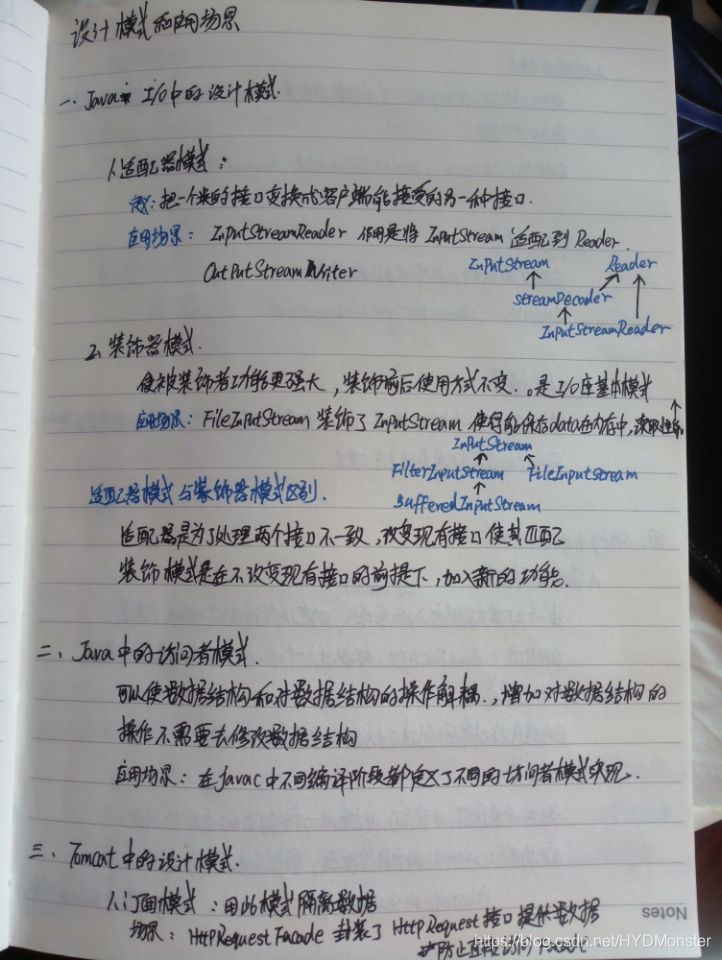 设计模式和应用场景
一、Java中 I/O中的设计模式.
1、适配器模式：
定义：把一个类的接口变换成客户端能接受的另一种接口.
应用场景：InputStreamReader 作用是将 InputStream 适配到 Reader.
OutPutStreamWriter
InputStream Reader
StreamDecoder
InputStreamReader
2、装饰器模式.
使被装饰者功能更强大，装饰前后使用方式不变. 。是I/O库基本模式
应用场景：FileInputStream 装饰了 InputStream 使得能保存data在内存中，读取
InputStream
FilterInputStream FileInputStream
BufferedInputStream
适配器模式与装饰器模式区别.
适配器是为了处理两个接口不一致，改变现有接口使其匹配
装饰模式是在不改变现有接口的前提下，加入新的功能.
二、Java中的访问者模式.
可以使数据结构和对数据结构的操作解耦.，增加对数据结构的
操作不需要去修改数据结构
应用场景：在Javac中不同编译阶段都定义了不同的访问者模式实现.
三、Tomcat中的设计模式.
1、门面模式：用此模式隔离数据
场景：HttpRequestFacade 封装了 HttpRequest 接口提供数据
防止直接访问
Notes
https://blog.csdn.net/HYDMonster